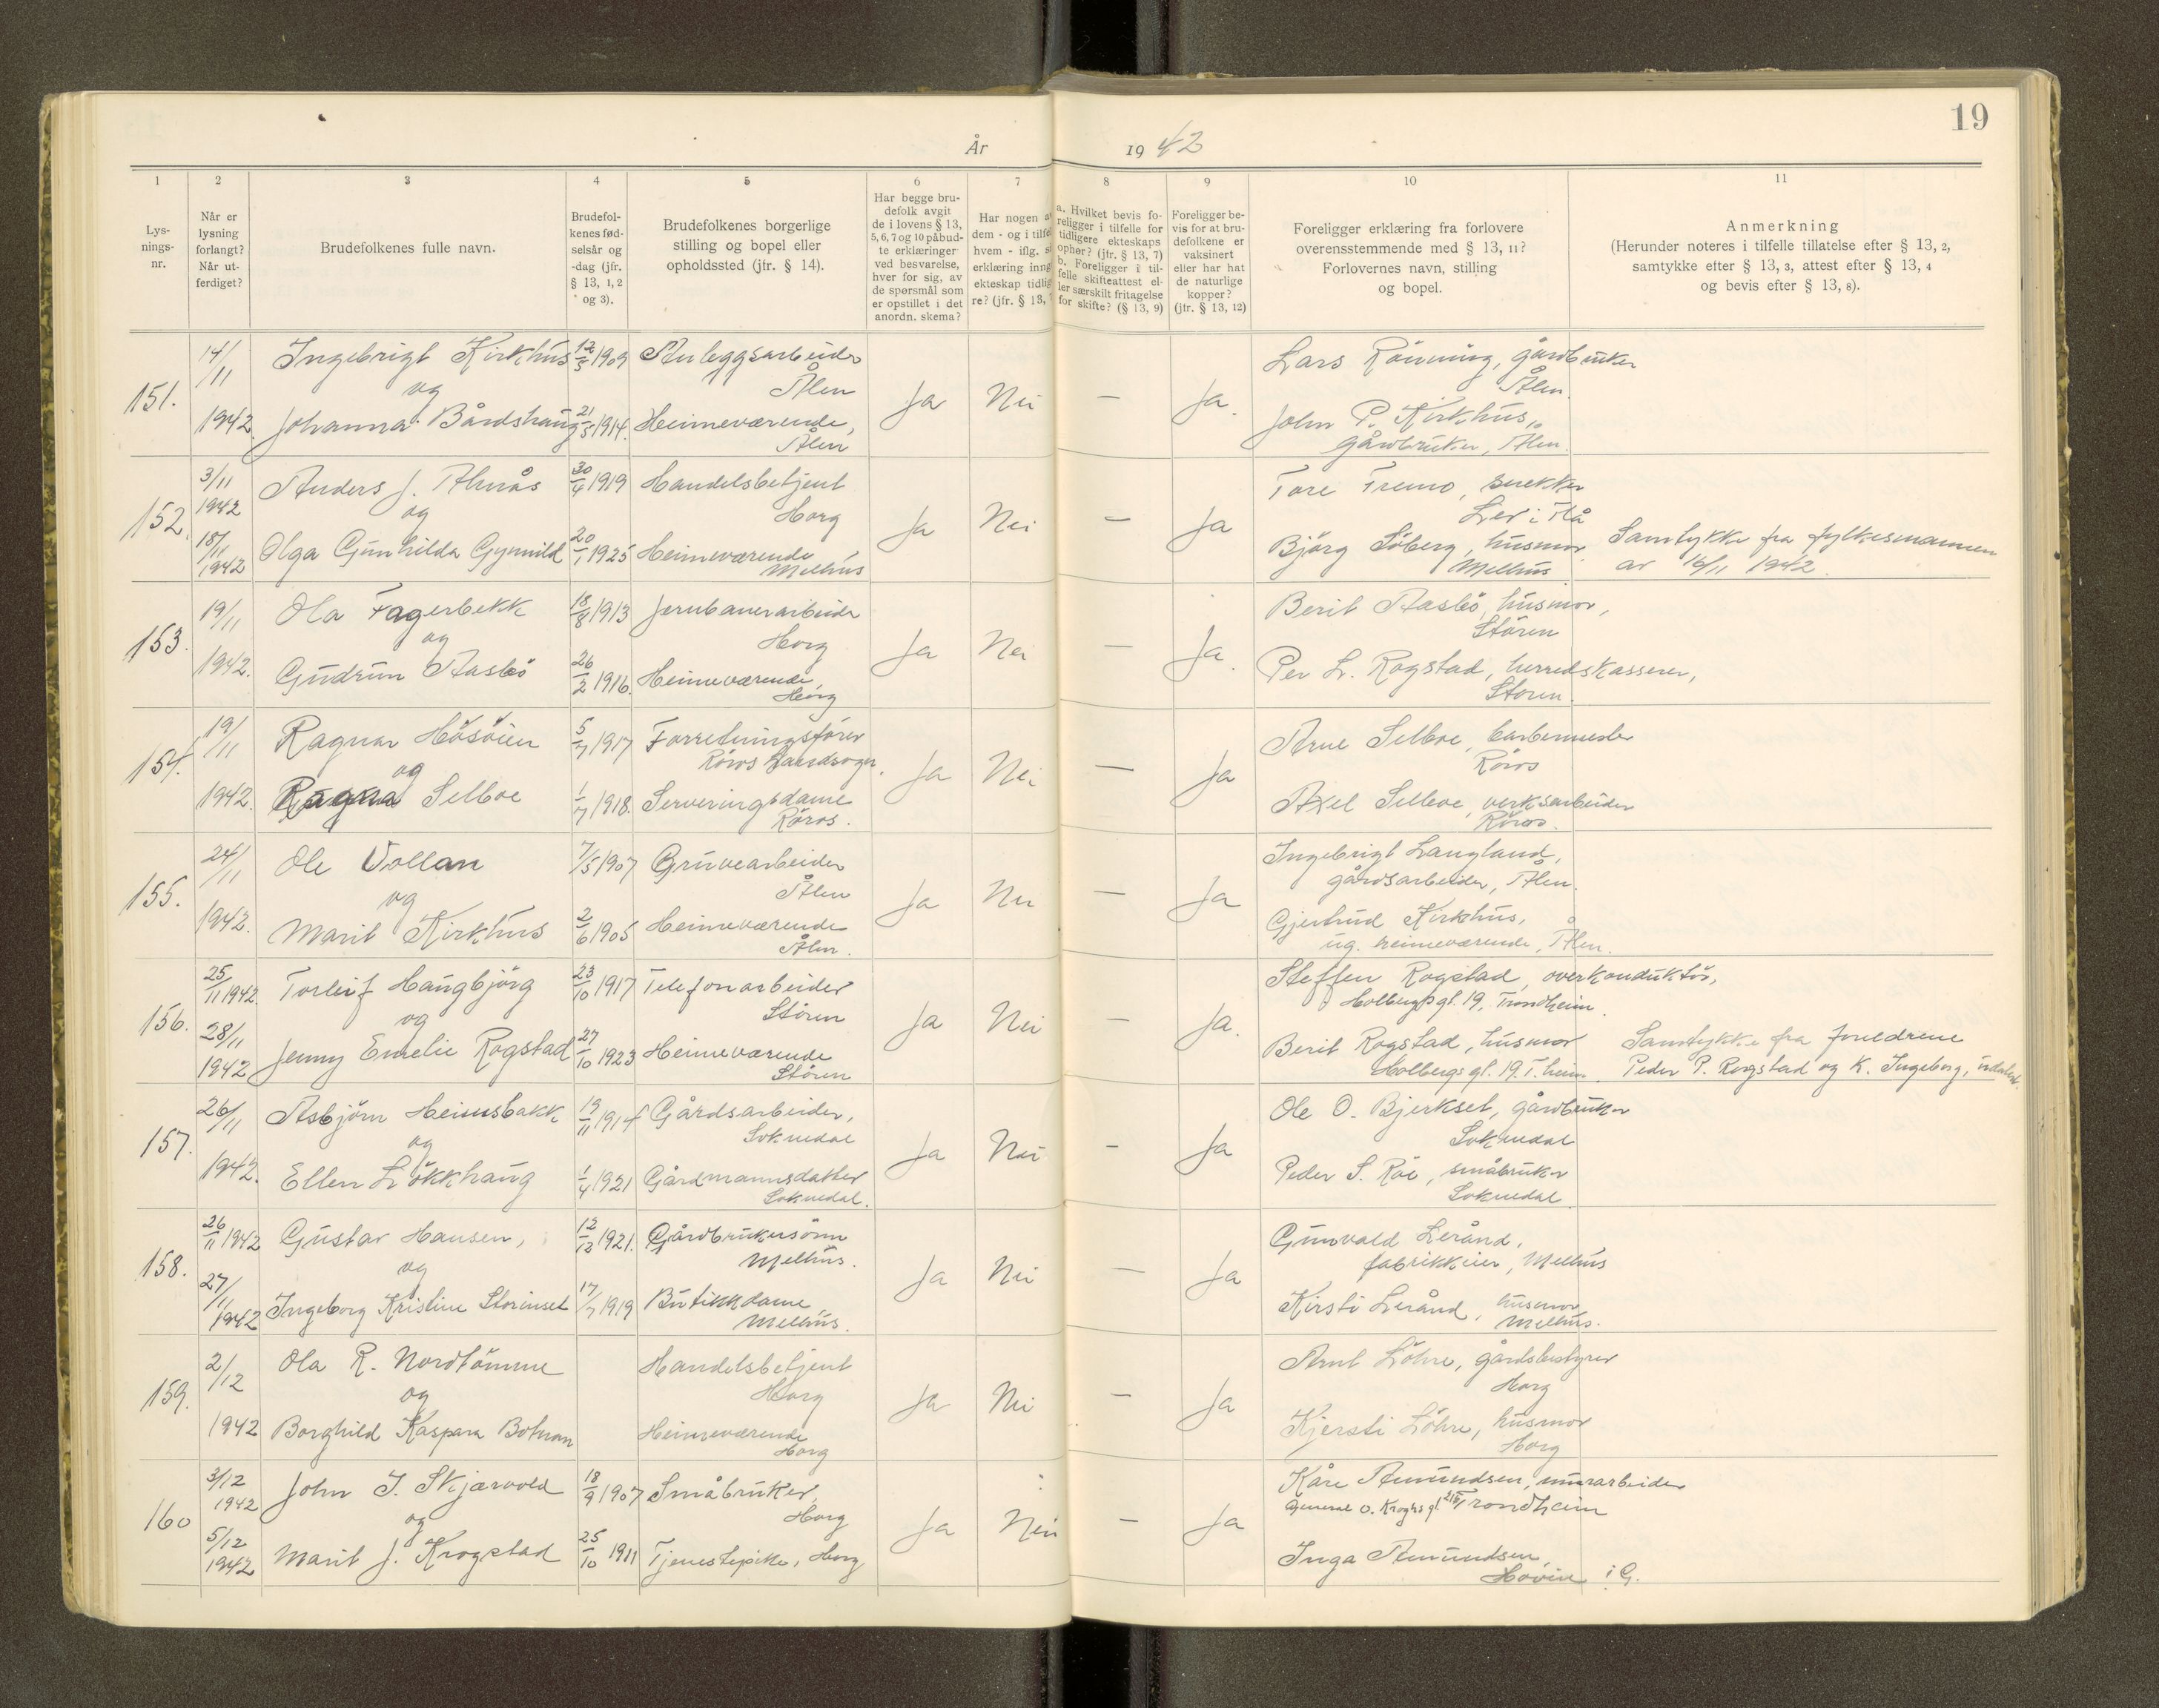 19
År 1942
1 2 3 4 5 6 7 8 9 10 11
Lys-
nings-
nr.
Når er
lysning
forlangt?
Når ut-
ferdiget?
Brudefolkenes fulle navn.
Brudefol-
kenes fød-
selsår og
-dag (jfr.
§ 13, 1, 2
og 3).
Brudefolkenes borgerlige
stilling og bopel eller
opholdssted (jfr. § 14).
Har begge bru-
defolk avgit
de i lovens § 13,
5, 6, 7 og 10 påbud-
te erklæringer
ved besvarelse,
hver for sig, av
de spørsmål som
er opstillet i det
anordn. skema?
Har nogen a
dem - og i tilfe
hvem - iflg. s
erklæring inng
ekteskap tidlig
re? (jfr. § 13,
a. Hvilket bevis fo-
religger i tilfelle for
tidligere ekteskaps
ophør? (jfr. § 13, 7)
b. Foreligger i til-
felle skifteattest el-
ler særskilt fritagelse
for skifte? (§ 13, 9)
Foreligger be-
vis for at bru-
defolkene er
vaksinert
eller har hat
de naturlige
kopper?
(jfr. § 13, 12)
Foreligger erklæring fra forlovere
overensstemmende med § 13, 11?
Forlovernes navn, stilling
og bopel.
Anmerkning
(Herunder noteres i tilfelle tillatelse efter § 13, 2,
samtykke efter § 13, 3, attest efter § 13, 4
og bevis efter § 13, 8).
151.
14/11
1942.
Ingebrigt Kirkhus
og
Johanna Bårdshaug
12/5 1909
21/5 1914.
Anleggsarbeider
Ålen
Heimeværende,
Ålen
Ja
Nei
—
Ja.
Lars Rönning, gårdbruker
Ålen.
John P. Kirkhus,
gårdbruker, Ålen
152.
3/11
1942
18/11
1942
Anders J. Almås
og
Olga Gunhilda Gynnild
30/4 1919
20/1 1925
Handelsbetjent
Horg
Heimeværende
Melhus
Ja
Nei
—
Ja
Tore Tremo, snekker
Ler i Flå
Björg Söberg, husmor
Melhus
Samtykke fra fylkesmannen
av 16/11 1942.
153.
19/11
1942.
Ola Fagerbekk
og
Gudrun Aasbö
18/8 1913
26/2 1916.
Jernbanearbeider
Horg
Heimeværende,
Horg
Ja
Nei
—
Ja.
Berit Aasbö, husmor,
Stören
Per L. Rogstad, herredskasserer,
Stören.
154.
19/11
1942.
Ragnar Hösöien
og
Ragna Selboe
5/7 1917
1/7 1918.
Forretningsförer
Röros landsogn.
Serveringsdame
Röros.
Ja
Nei
—
Ja
Arne Selboe, barbermester
Röros
Axel Selboe, verksarbeider
Röros.
155.
24/11
1942.
Ole Vollan
og
Marit Kirkhus
7/5 1907
2/6 1905
Gruvearbeider
Ålen
Heimeværende
Ålen.
Ja
Nei
—
Ja
Ingebrigt Langland,
gårdsarbeider, Ålen.
Gjertrud Kirkhus,
ug. heimeværende, Ålen.
156.
25/11 1942.
28/11
1942
Torleif Haugbjörg
og
Jenny Emelie Rogstad
23/10 1917
27/10 1923
Telefonarbeider
Stören
Heimeværende
Stören
Ja
Nei
—
Ja.
Steffen Rogstad, overkonduktör,
Holbergs gt. 19, Trondheim.
Berit Rogstad, husmor
Holbergs gt. 19. T.heim.
Samtykke fra foreldrene
Peder P. Rogstad og K. Ingeborg, udatert.
157.
26/11
1942.
Asbjörn Heimsbakk
og
Ellen Lökkhaug
19/11 1914
1/4 1921
Gårdsarbeider,
Soknedal
Gårdmannsdatter
Soknedal.
Ja
Nei
—
Ja
Ole O. Bjerkset, gårdbruker
Soknedal
Peder S. Röe, småbruker
Soknedal
158.
26/11 1942
27/11
1942
Gustav Hansen,
og
Ingeborg Kristine Storinset
12/12 1921.
17/7 1919
Gårdbrukersönn
Melhus.
Butikkdame,
Melhus.
Ja
Nei
—
Ja
Gunvald Lerånd,
fabrikkeier, Melhus
Kirsti Lerånd, husmor
Melhus.
159.
2/12
1942
Ola R. Nordtömme
og
Borghild Kaspara Botnan
Handelsbetjent
Horg
Heimeværende
Horg
Ja
Nei
—
Ja
Arnt Löhre, gårdsbestyrer
Horg
Kjersti Löhre, husmor
Horg
160
3/12
1942
5/12
1942
John J. Skjærvold
og
Marit J. Krogstad
18/9 1907
25/10 1911
Småbruker,
Horg
Tjenestepike, Horg
Ja
Nei
—
Ja
Kåre Amundsen, murarbeider
General v. Kroghs gt. Trondheim
Inga Amundsen,
Hovin i G.